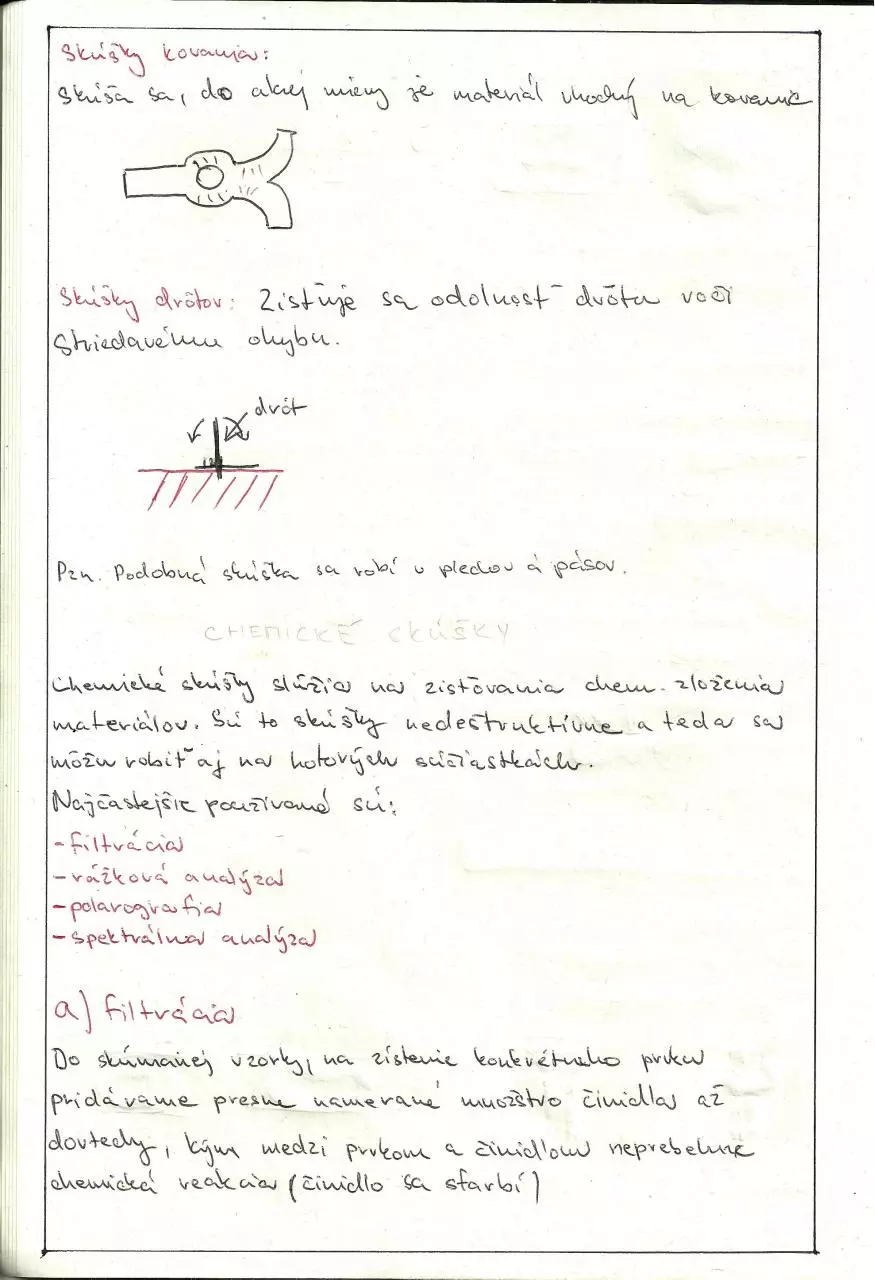 Skúšky kovania:
Skúša sa, do akej miery je materiál vhodný na kovanie
Skúšky drôtov: Zisťuje sa odolnosť drôtu voči
striedavému ohybu.
drôt
Pzn. Podobná skúška sa robí u plechov a pásov.
CHEMICKÉ SKÚŠKY
Chemické skúšky slúžia na zisťovania chem. zloženia
materiálov. Sú to skúšky nedeštruktívne a teda sa
môžu robiť aj na hotových súčiastkách.
Najčastejšie používané sú:
- filtrácia
- vážková analýza
- polarografia
- spektrálna analýza
a) filtrácia
Do skúmanej vzorky, na zistenie konkrétneho prvku
pridávame presne namerané množstvo činidla až
dovtedy, kým medzi prvkom a činidlom neprebehne
chemická reakcia (činidlo sa sfarbí)